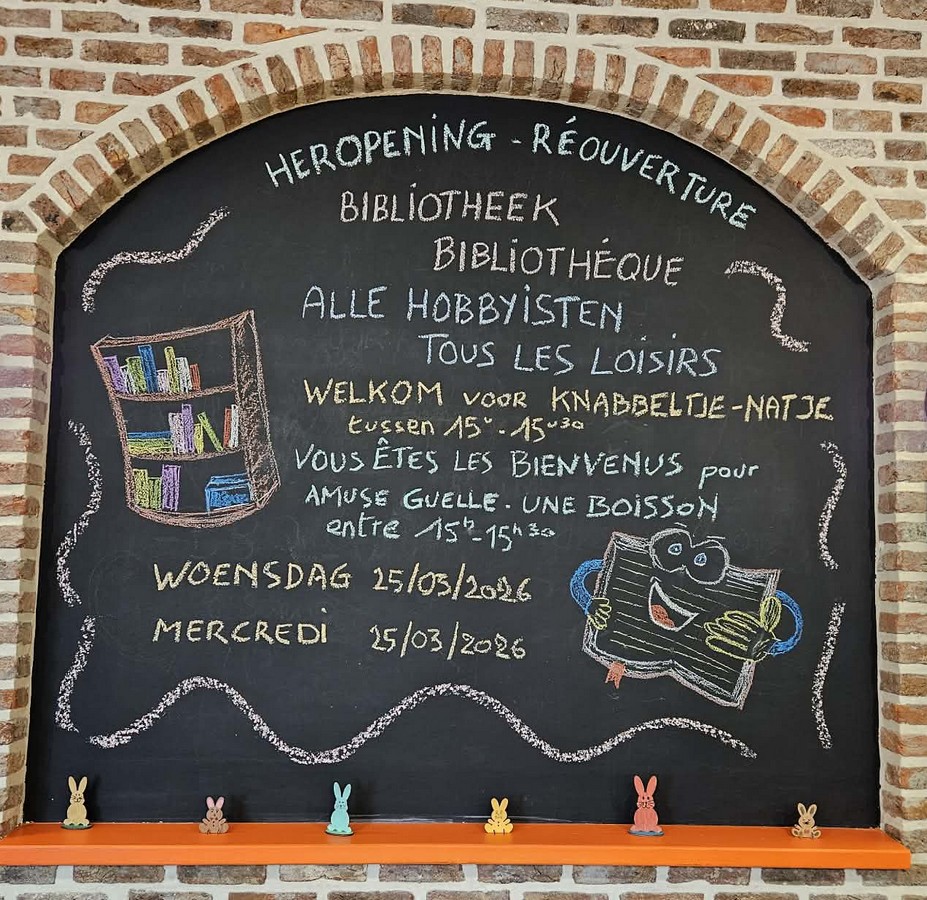 HEROPENING - RÉOUVERTURE
BIBLIOTHEEK
BIBLIOTHÉQUE
ALLE HOBBYISTEN
TOUS LES LOISIRS
WELKOM voor KNABBELTJE-NATJE
tussen 15u-15u30
VOUS ÊTES LES BIENVENUS pour
AMUSE GUELLE. UNE BOISSON
entre 15h-15h30
WOENSDAG 25/03/2026
MERCREDI 25/03/2026